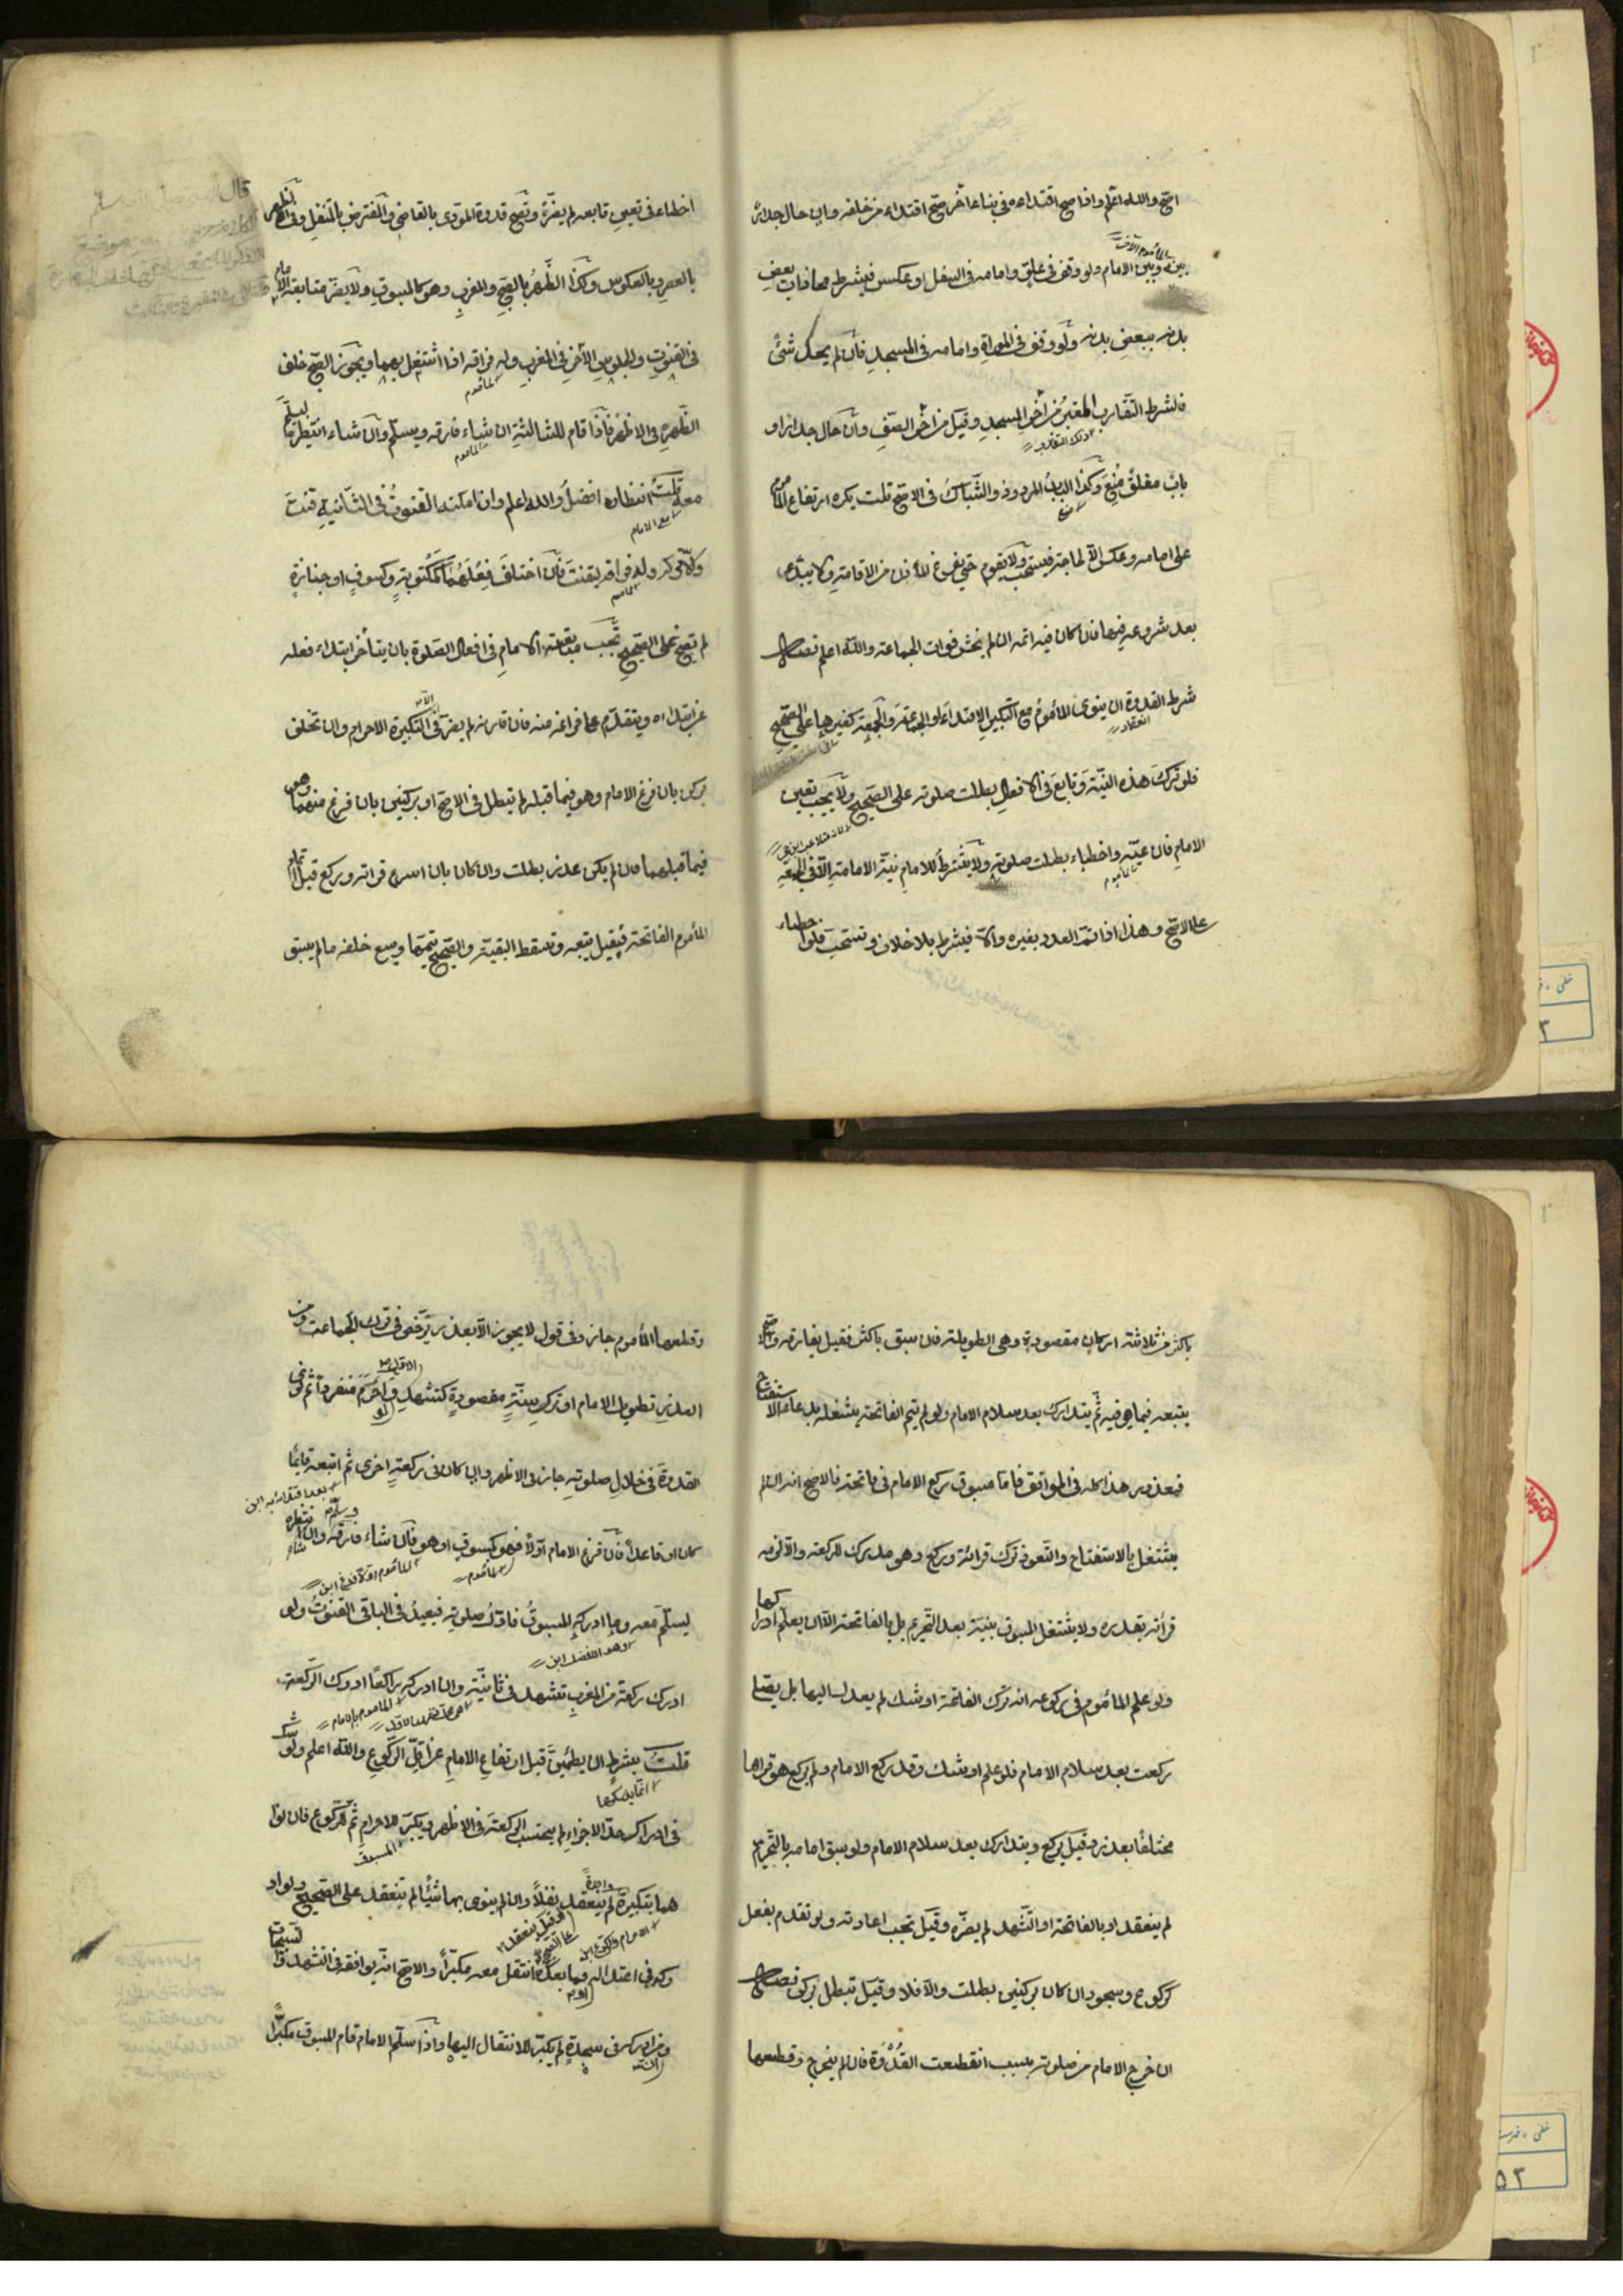 اصح والله اعلم واذا صح اقتداءه في بناء اخر صح اقتداء من خلفه وان حال جدار
بينه وبين الامام ولو وقف في علو وامامه في السفل او عكس فيشترط محاذات بعض
بدنه ببعض بدنه ولو وقف في الموات وامامه في المسجد فان لم يحل شئ
فالشرط التقارب المعتبر من اخر المسجد وقيل من اخر الصف وان حال جدار او
باب مغلق منع وكذا الباب المردود والشباك في الاصح قلت يكره ارتفاع المأموم
على امامه وعكسه الا لحاجة فيستحب ولا يقوم حتى يفرغ المؤذن من الاقامة ولا يبتدء
بعد شروعه فيها فان كان فيه اتمه ان لم يخش فوات الجماعة والله اعلم فصل
شرط القدوة ان ينوى المأموم مع التكبير الاقتداء او الجماعة والجمعة كغيرها على الصحيح
فلو ترك هذه النية وتابع في الافعال بطلت صلوته على الصحيح ولا يجب تعيين
الامام فان عينه واخطاء بطلت صلوته ولا يشترط للامام نية الامامة الا في الجمعة
على الاصح وهذا اذا تم العدد بغيره والا فيشترط بلا خلاف وتستحب فلو اخطاء
اخطاء في تعيين تابعه لم يضره وتصح قدوة المؤدى بالقاضى والمفترض بالمتنفل وفى الظهر
بالعصر وبالعكوس وكذا الظهر بالصبح والمغرب وهو كالمسبوق ولا يضر متابعة الامام
في القنوت والجلوس الاخر في المغرب وله فراقه اذا اشتغل بهما ويجوز الصبح خلف
الظهر في الاظهر فاذا قام للثالثة ان شاء فارقه ويسلم وان شاء انتظر ليسلم
معه قلت انتظاره افضل والله اعلم وان امكنه القنوت في الثانية قنت
والا تركه وله فراقه ليقنت فان اختلف فعلهما كمكتوبة وكسوف او جنازة
لم تصح على الصحيح تجب متابعة الامام في افعال الصلوة بان يتأخر ابتداء فعله
عن ابتداءه ويتقدم على فراغه منه فان قارنه لم يضر الا في التكبيرة الاحرام وان تخلف
بركن بان فرغ الامام وهو فيما قبله لم تبطل في الاصح او بركنين بان فرغ منهما وهو
فيما قبلهما فان لم يكن عذر بطلت وان كان بان اسرع قراءته وركع قبل اتمام
المأموم الفاتحة فقيل يتبعه وتسقط البقية والصحيح يتمها ويسعى خلفه ما لم يسبق
باكثر من ثلاثة اركان مقصودة وهى الطويلة فان سبق باكثر فقيل يفارقه والاصح
يتبعه فيما هو فيه ثم يتدارك بعد سلام الامام ولو لم يتم الفاتحة لشغله بدعاء الاستفتاح
فمعذور هذا كله في الموافق فاما مسبوق ركع الامام في فاتحته فالاصح انه ان لم
يشتغل بالاستفتاح والتعوذ ترك قرائته وركع وهو مدرك للركعة والا لزمه
قرائته بقدره ولا يشتغل المسبوق بسنة بعد التحرم بل بالفاتحة الا ان يعلم ادراكها
ولو علم المأموم في ركوعه انه ترك الفاتحة او شك لم يعد اليها بل يصلى
ركعة بعد سلام الامام فلو علم او شك وقد ركع الامام ولم يركع هو قراها
مختلفا بعذر وقيل يركع ويتدارك بعد سلام الامام ولو سبق امامه بالتحرم
لم ينعقد او بالفاتحة او التشهد لم يضره وقيل تجب اعادته ولو تقدم بفعل
كركوع وسجود ان كان بركنين بطلت والا فلا وقيل تبطل بركن فصل
ان خرج الامام من صلوته بسبب انقطعت القدوة فان لم يخرج وقطعها
وقطعها المأموم جاز وفى قول لا يجوز الا بعذر يرخص في ترك الجماعة ومن
العذر تطويل الامام او تركه سنة مقصودة كتشهد ولو احرم منفردا ثم نوى
القدوة في خلال صلوته جاز في الاظهر وان كان في ركعة اخرى ثم اتبعه قايما
كان او قاعدا فان فرغ الامام اولا فهو كمسبوق او هو فان شاء فارقه وان شاء انتظره
ليسلم معه وما ادركه المسبوق فاول صلوته فيعيد في الباقى القنوت ولو
ادرك ركعة من المغرب تشهد في ثانيته وان ادركه راكعا ادرك الركعة
قلت بشرط ان يطمئن قبل ارتفاع الامام عن اقل الركوع والله اعلم ولو شك
في ادراك حد الاجزاء لم يحتسب الركعة في الاظهر ويكبر للاحرام ثم للركوع فان نوا
هما بتكبيرة واحدة لم ينعقد نفلا وان لم ينوى بها شيئا لم تنعقد على الصحيح ولو ادر
وكه في اعتداله فما بعده انتقل معه مكبرا والاصح انه يوافقه في التشهد والتسبيحات
ومن ادركه في سجدة لم يكبر للانتقال اليها واذا سلم الامام قام المسبوق مكبرا